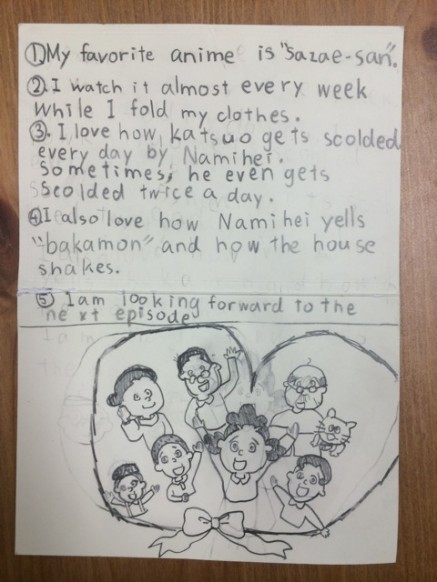 ①My favorite anime is "Sazae-san".
②.I watch it almost every week
while I fold my clothes.
③.I love how katsuo gets scolded
every day by Namihei.
Sometimes, he even gets
scolded twice a day.
④I also love how Namihei yells
"bakamon" and how the house
shakes.
⑤ Iam looking forward to the
ne xt episode